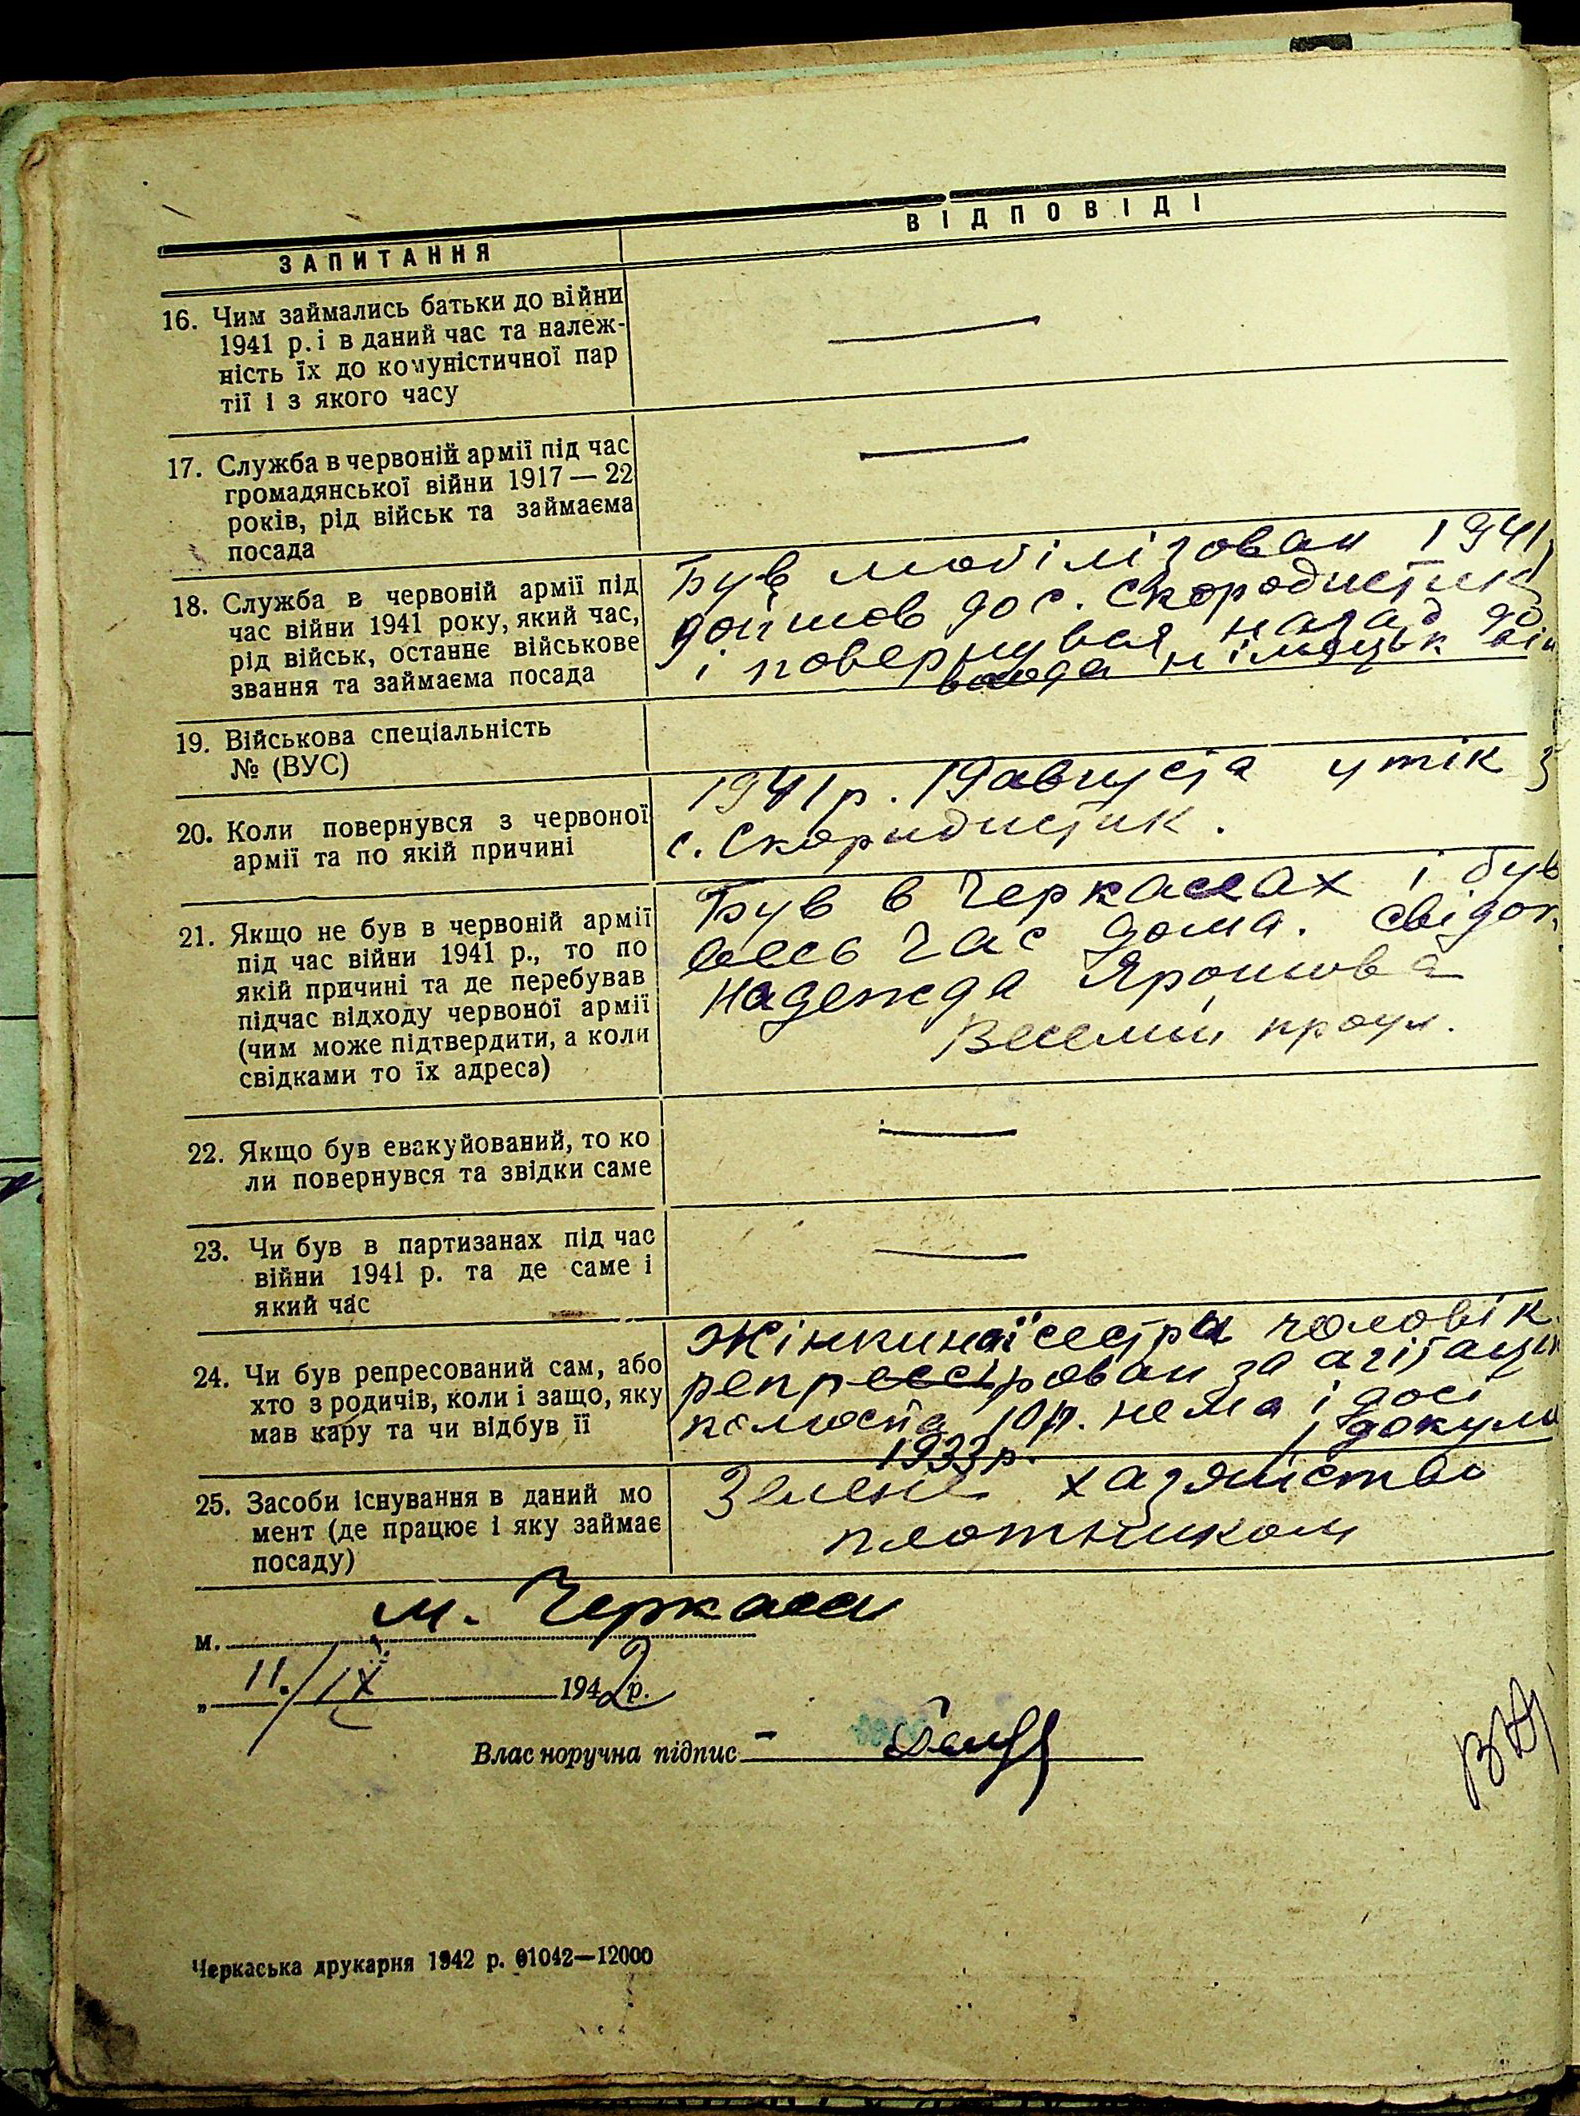 ЗАПИТАННЯ
ВІДПОВІДІ
16. Чим займались батьки до війни
1941 р. і в даний час та належ-
ність їх до комуністичної пар
тії і з якого часу
17. Служба в червоній армії під час
громадянської війни 1917 — 22
років, рід військ та займаєма
посада
18. Служба в червоній армії під
час війни 1941 року, який час,
рід військ, останнє військове
звання та займаєма посада
Був мобілізован 1941
дойшов до с. Скородистик
і повернувся назад до
німецьк
19. Військова спеціальність
№ (ВУС)
20. Коли повернувся з червоної
армії та по якій причині
1941 р. 19 августа утік з
с. Скородистик.
21. Якщо не був в червоній армії
під час війни 1941 р., то по
якій причині та де перебував
підчас відходу червоної армії
(чим може підтвердити, а коли
свідками то їх адреса)
Був в Черкассах і був
весь час дома. свідок
Надежда Ярошова
Веселий проул.
22. Якщо був евакуйований, то ко
ли повернувся та звідки саме
23. Чи був в партизанах під час
війни 1941 р. та де саме і
який час
24. Чи був репресований сам, або
хто з родичів, коли і защо, яку
мав кару та чи відбув її
Жінкиной сестри чоловік
репресірован за агітацію
10 р. нема і досі
докум
1933 р.
25. Засоби існування в даний мо
мент (де працює і яку займає
посаду)
Зелене хазяйство
плотником
м. м. Черкаси
„ 11./IX 1942 р.
Власноручна підпис
Черкаська друкарня 1942 р. 01042—12000